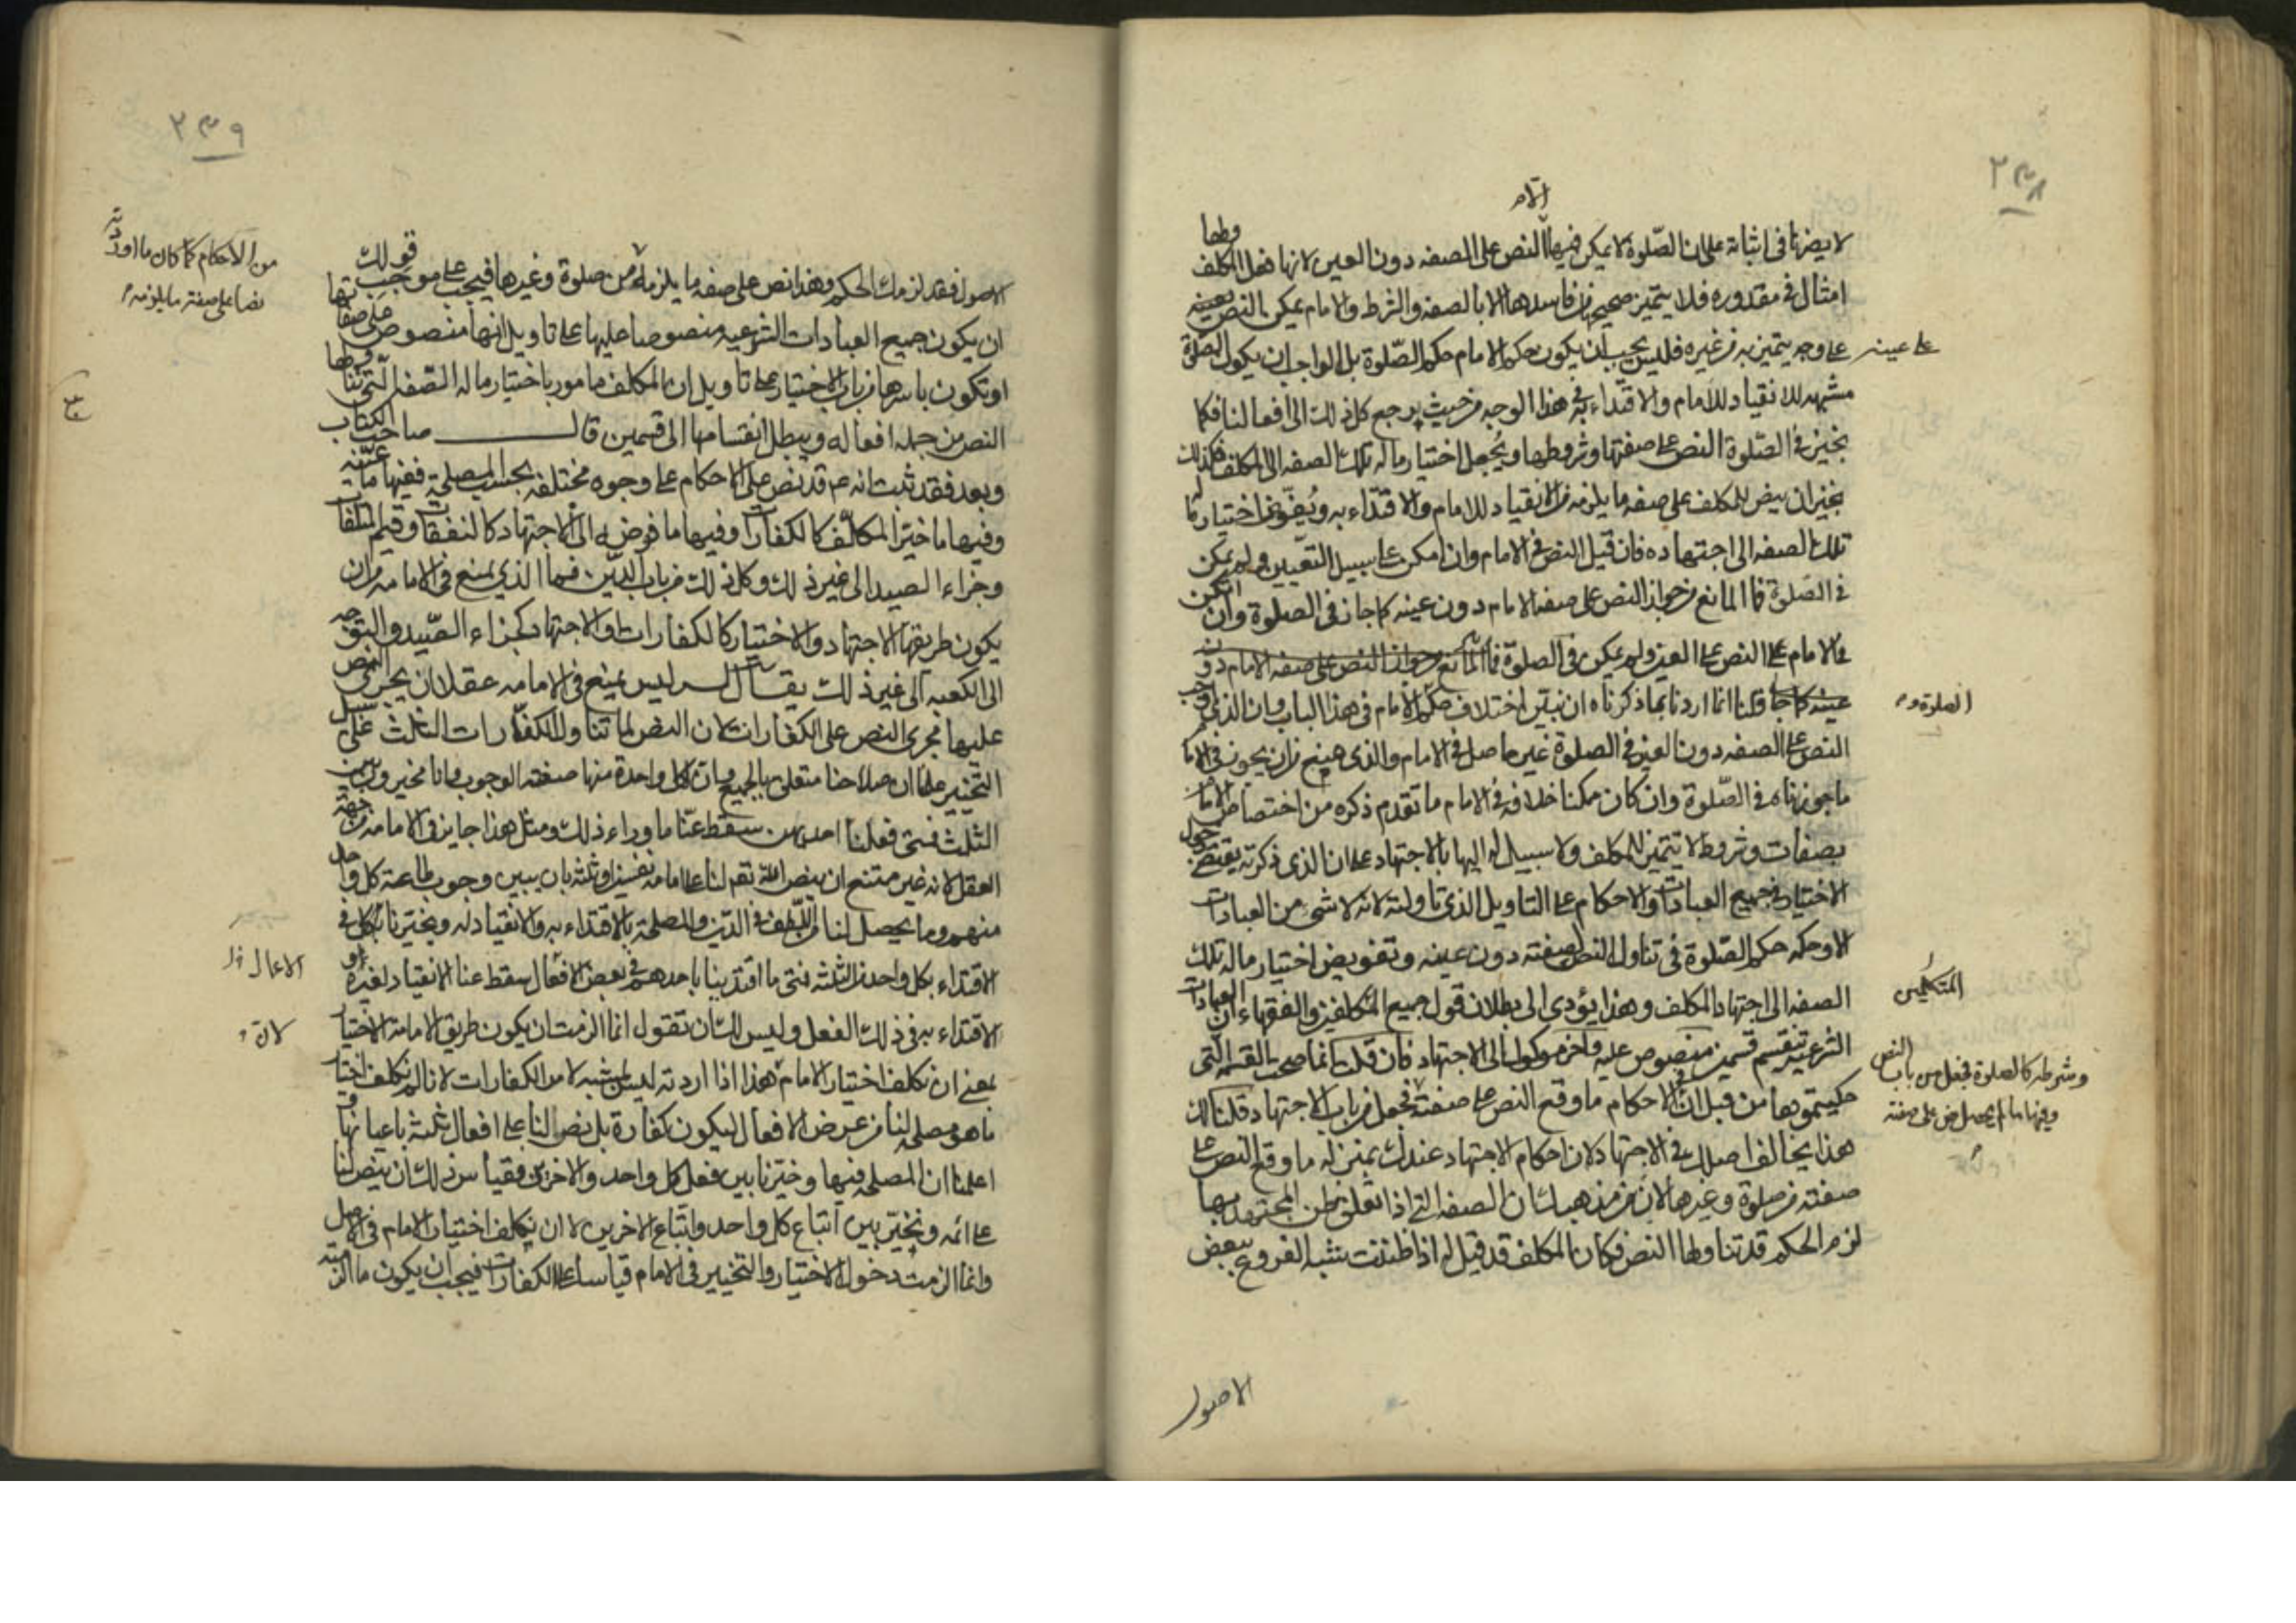 ٢٣٨
الا
لا يضرنا في اثباته على ان الصّلوة لا يمكن فيها النص على الصفه دون العين لانها فعل المكلف ولها
امثال في مقدوره فلا يتميز صحيحها من فاسدها الا بالصفه والشرط والامام يمكن النص بعينه
على عينه على وجه يتميز به من غيره فليس يجب ان يكون حكم الامام حكم الصّلوة بل الواجب ان يكون الصّلوة
مشبهه للانقياد للامام والاقتداء به في هذا الوجه من حيث يرجع كل ذلك الى افعالنا فكما
نجيز في الصّلوة النص على صفتها وشروطها ويُجعل اختيار ما له تلك الصفه الى المكلف فكذلك
نجيز ان ينص للمكلف على صفه ما يلزمه من الانقياد للامام والاقتداء به ويُفوّض اختيار ما له
تلك الصفه الى اجتهاده فان قيل النص في الامام وان امكن على سبيل التعيين ولم يمكن
في الصّلوة فما المانع من جواز النص على صفه الامام دون عينه كما جاز في الصلوة وان امكن
في الامام على النص على العين ولم يمكن في الصلوة فما المانع من جواز النص على صفه الامام دون
عينه كما جا قلنا انما اردنا بما ذكرناه ان نبين اختلاف حكم الصلوة و الامام في هذا الباب وان الذي اوجب
النص على الصفه دون العين في الصلوة غير حاصل في الامام والذي يمنع من ان يجوز في الامام
ما جوزناه في الصّلوة وان كان ممكنا خلافه في الامام ما تقدم ذكره من اختصاص الامام
بصفات وشروط لا تتميز للمكلف ولا سبيل له اليها بالاجتهاد على ان الذي ذكرته يقتضي دخول
الاختيار في جميع العبادات والاحكام على التاويل الذي تاولته لانه لا شي من العبادات
الا وحكمه حكم الصّلوة في تناول النص لصفته دون عينه وتفويض اختيار ما له تلك
الصفه الى اجتهاد المكلف وهذا يؤدي الى بطلان قول جميع المتكلمين والفقهاء ان العبادات
الشرعيه تنقسم قسمين منصوص عليه وآخر موكول الى الاجتهاد فان قلت انما صحت القسمه التي
حكيتموها من قبل ان في الاحكام ما وقع النص على صفته وشرطه كالصلوة فجعل من باب النص وفيها ما لم يحصل نص على صفته فجعل من باب الاجتهاد قلنا لك
هذا يخالف اصلك في الاجتهاد لان احكام الاجتهاد عندك بمنزلة ما وقع النص على
صفته من صلوة وغيرها لان من مذهبك ان الصفه التي اذا تعلق ظن المجتهد بها
لزم الحكم قد تناولها النص فكان المكلف قد قيل له اذا ظننت شبه الفروع ببعض
الاصول
٢٣٩
الاصول فقد لزمك الحكم وهذا نص على صفه ما يلزمه من الاحكام كما كان ما اوردته نصا على صفة ما يلزمه من صلوة وغيرها فيجب على موجب قولك
ان يكون جميع العبادات الشرعيه منصوصا عليها على تاويل انها منصوص على صفاتها
او تكون باسرها من باب الاختيار على تاويل ان المكلف مامور باختيار ما له الصّفه التي تناولها
النص من جمله افعاله ويبطل انقسامها الى قسمين قال صاحب الكتاب
وبعد فقد ثبت انه ع قد نص على الاحكام على وجوه مختلفه بحسب المصلحة ففيها ما عيّنه
وفيها ما خيّر المكلّف كالكفارات وفيها ما فوض الى الاجتهاد كالنفقات وقيم المتلفات
وجزاء الصيد الى غير ذلك وكل ذلك من باب الدّين فما الذي يمنع في الامامه من ان
يكون طريقها الاجتهاد والاختيار كالكفارات والاجتهاد كجزاء الصّيد والتوجه
الى الكعبه الى غير ذلك يقال له ليس يمتنع في الامامه عقلا ان يجري النص
عليها مجرى النص على الكفارات لان النص لما تناول الكفّارات الثلث على سبيل
التخيير علمنا ان صلاحنا متعلق بالجميع وان لكل واحدة منها صفة الوجوب وانا مخيرون بين
الثلث فمتى فعلنا احديهن سقط عنّا ما وراء ذلك ومثل هذا جايز في الامامه من جهة
العقل لانه غير ممتنع ان ينص الله تع لنا على امامه نفسين او ثلثه بان يبين وجوب طاعة كل واحد
منهم وما يحصل لنا من اللّطف في الدّين والمصلحة بالاقتداء به والانقياد له ويخيّرنا بكل في
الاقتداء بكل واحد من الثلثه فمتى ما اقتدينا باحدهم في بعض الافعال سقط عنا الانقياد لغيره او
الاقتداء به في ذلك الفعل وليس لك ان تقول انما الزمت ان يكون طريق الامامة الاختيار
بمعنى ان نكلف اختيار الامام لان هذا اذا اردته ليس بمشبه لامر الكفارات لانا لم نكلف اختيار
ما هو مصلحه لنا من عرض الافعال ليكون كفارة بل نص لنا على افعال ثلثة باعيانها و
اعلمنا ان المصلحه فيها وخيّرنا بين فعل كل واحد والاخرى فقياس ذلك ان ينص لنا
على ائمه ونخيّر بين اتباع كل واحد واتّباع الاخرين لا ان نكلف اختيار الامام في الاصل
وانما الزمت دخول الاختيار والتخيير في الامام قياسا على الكفارات فيجب ان يكون ما الزمته